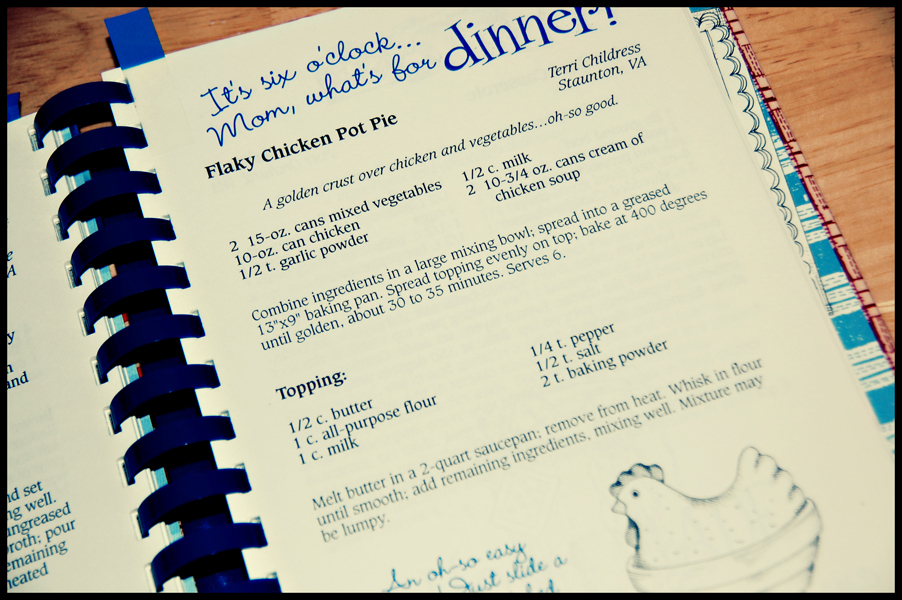 It's six o'clock...
Mom, what's for dinner!
Terri Childress
Staunton, VA
Flaky Chicken Pot Pie
A golden crust over chicken and vegetables...oh-so good.
2 15-oz. cans mixed vegetables
10-oz. can chicken
1/2 t. garlic powder
1/2 c. milk
2 10-3/4 oz. cans cream of
chicken soup
Combine ingredients in a large mixing bowl; spread into a greased
13"x9" baking pan. Spread topping evenly on top; bake at 400 degrees
until golden, about 30 to 35 minutes. Serves 6.
Topping:
1/2 c. butter
1 c. all-purpose flour
1 c. milk
1/4 t. pepper
1/2 t. salt
2 t. baking powder
Melt butter in a 2-quart saucepan; remove from heat. Whisk in flour
until smooth; add remaining ingredients, mixing well. Mixture may
be lumpy.
An oh-so easy
Just slide a
and
nd set
ng well.
ungreased
roth; pour
emaining
heated